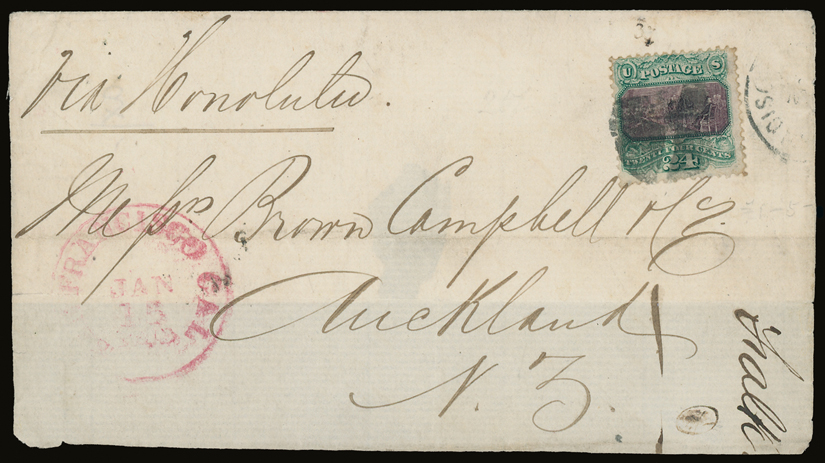 Via Honolulu.
U S
POSTAGE
24
CENTS
Messrs Brown Campbell & Co
Auckland
N. Z.
FRANCISCO CAL
JAN
13